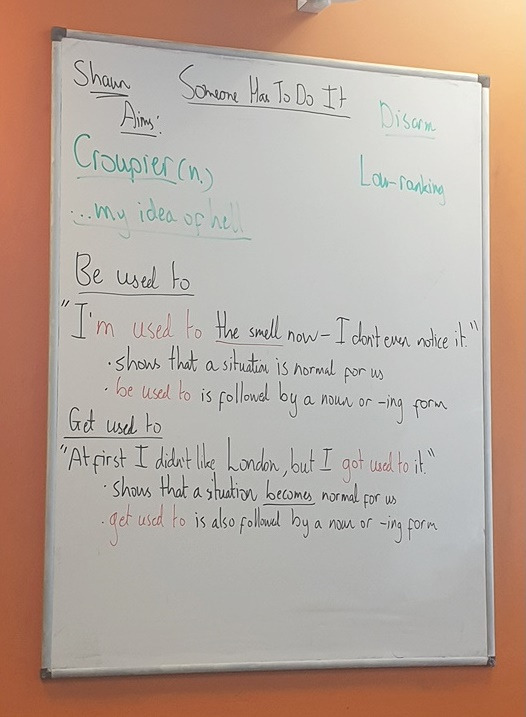 Shaun
Someone Has To Do It
Aims:
Disarm
Croupier (n.)
Low-ranking
...my idea of hell
Be used to
"I'm used to the smell now – I don't even notice it."
· shows that a situation is normal for us
· be used to is followed by a noun or -ing form
Get used to
"At first I didn't like London, but I got used to it."
· shows that a situation becomes normal for us
· get used to is also followed by a noun or -ing form